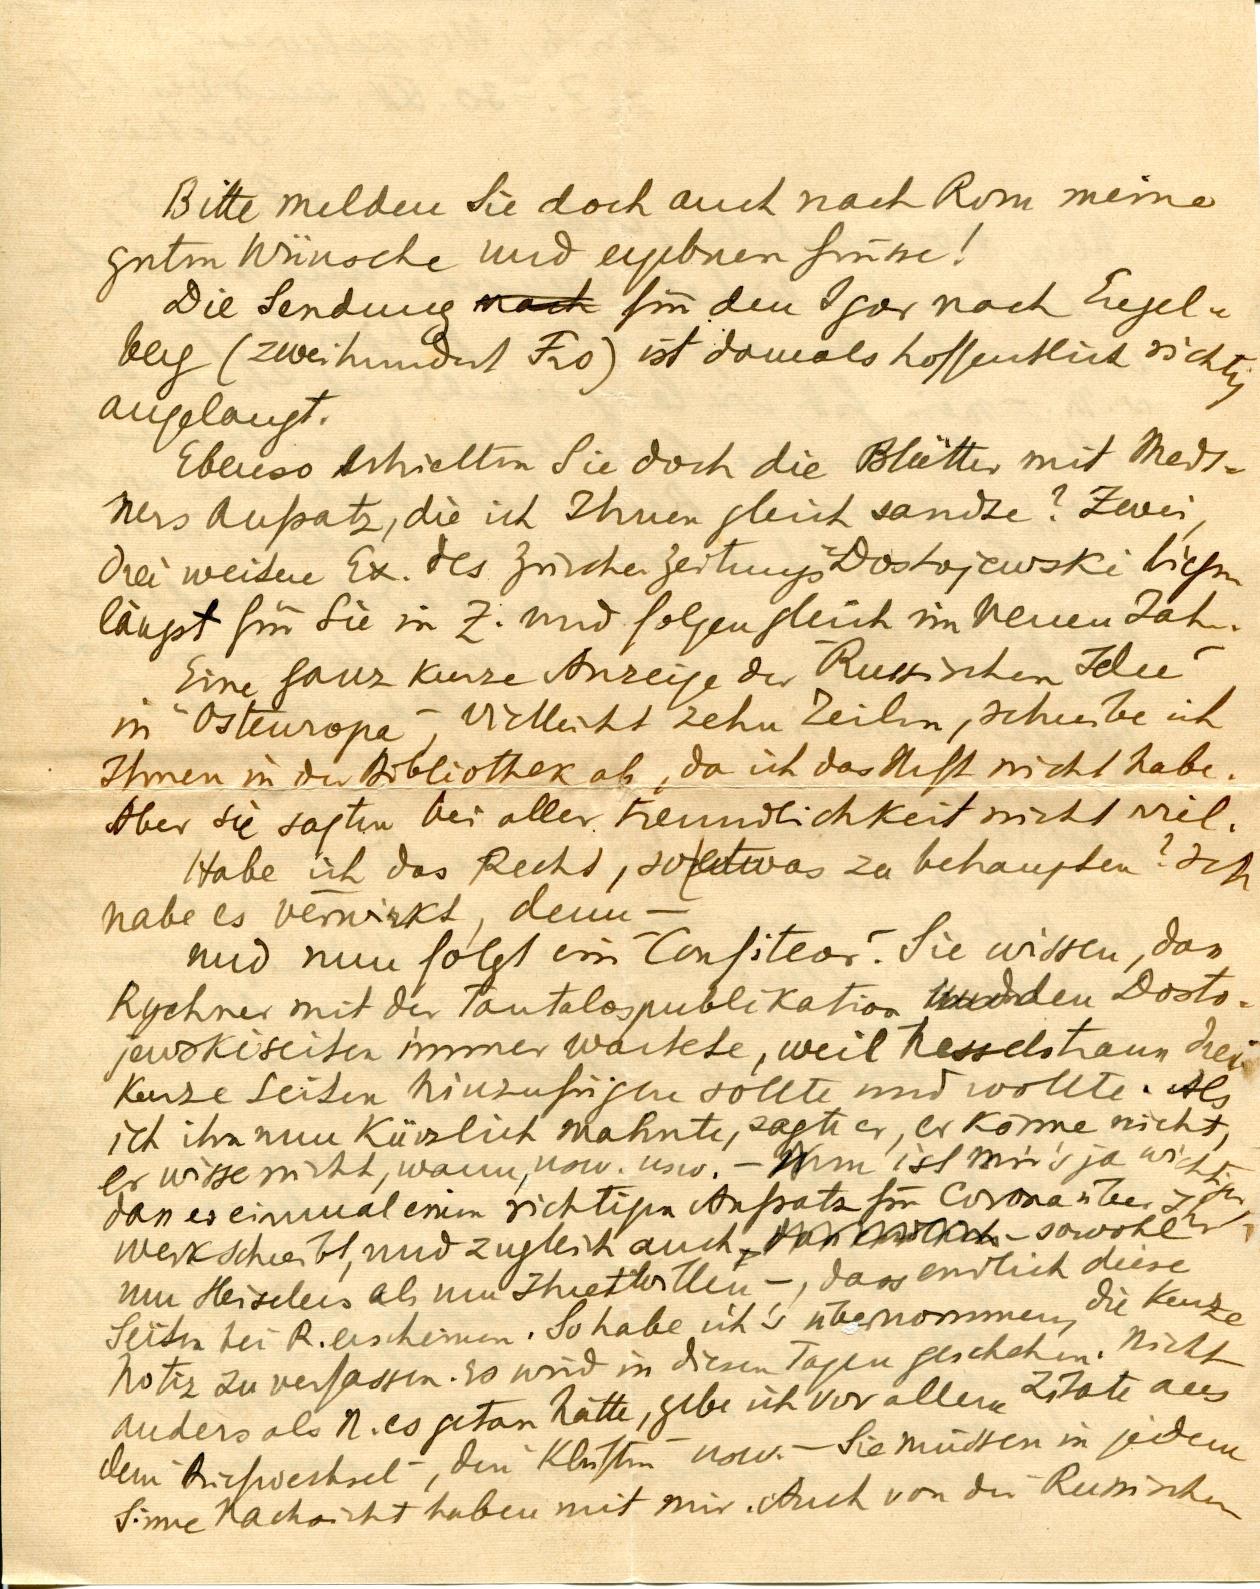 Bitte melden Sie doch auch nach Rom meine
guten Wünsche und ergebnen Grüsse!
Die Sendung nach für den Igor nach Engel-
berg (zweihundert Frs) ist damals hoffentlich richtig
angelangt.
Ebenso erhielten Sie doch die Blätter mit Meds-
ners Aufsatz, die ich Ihnen gleich sandte? Zwei,
drei weitere Ex. des Zürcher Zeitungs-Dostojewski liegen
längst für Sie in Z. und folgen gleich im neuen Jahr.
Eine ganz kurze Anzeige der "Russischen Idee"
in "Osteuropa", vielleicht zehn Zeilen, schreibe ich
Ihnen in der Bibliothek ab, da ich das Heft nicht habe.
Aber sie sagten bei aller Freundlichkeit nicht viel.
Habe ich das Recht, so etwas zu behaupten? Ich
habe es verwirkt, denn —
und nun folgt ein "Confiteor". Sie wissen, dass
Rychner mit der Tantalospublikation und den Dosto-
jewskiseiten immer wartete, weil Nesselstrauss drei
kurze Seiten hinzufügen sollte und wollte. Als
ich ihn nun kürzlich mahnte, sagte er, er könne nicht,
er wisse nicht, wann, usw. usw. — Nun ist mir's ja wichtiger,
dass er einmal einen richtigen Aufsatz für Corona über Ihr
Werk schreibt, und zugleich auch, – sowohl
um Heiselers als um Ihretwillen –, dass endlich diese
Seiten bei R. erscheinen. So habe ich's übernommen, die kurze
Notiz zu verfassen. Es wird in diesen Tagen geschehen. Nicht
anders als N. es getan hätte, gebe ich vor allem Zitate aus
dem "Briefwechsel", den "Klüften" usw. — Sie müssen in jedem
Sinne Nachsicht haben mit mir. Auch von der Russischen